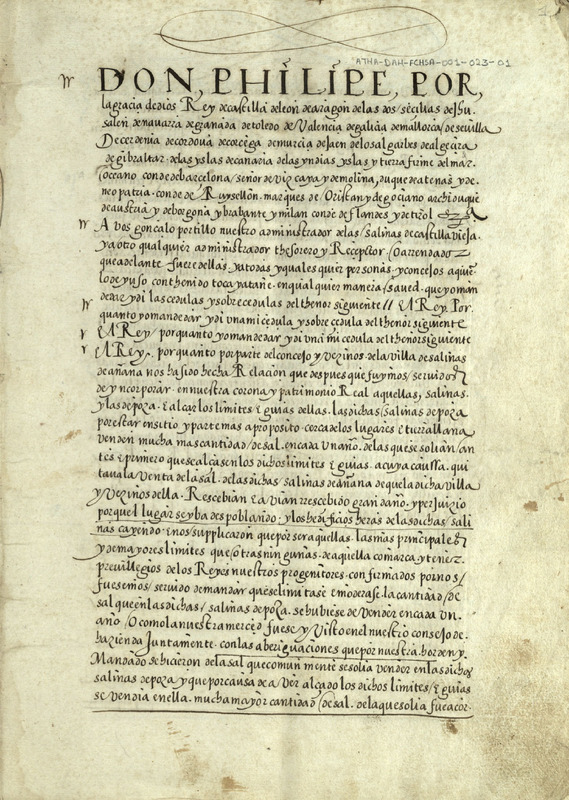 ATHA-DAH-FCHSA-001-023-01
DON, PHILIPE, POR,
la gracia de dios Rey de castilla de leon de aragon de las dos seçilias de Jhu
salen de navarra de granada de toledo de Valencia de galizia de mallorca de sevilla
De cerdenia de cordova de corcega de murcia de Jaen de los algarbes de algezira
de gibraltar. de las yslas de canaria de las yndias yslas y tierra firme del mar.
oceano conde de barcelona / señor de vizcaya y de molina, duque de atenas y de.
neopatria. conde de Ruysellon. marques de Oristan y de gociano archiduque
de austria y de borgonia y brabante y milan conde de flandes y de tirol
A vos gonçalo portillo nuestro administrador de las / salinas de castilla vieja.
ya otro qualquier administrador thesorero y Receptor / o arrendador
que adelante fuere dellas, ya todas y quales quier personas, y concejos a quien
lo de yuso conthenido toca y atañe. en qual quier manera / saved. que yo man
de dar y di las cedulas y sobre cedulas del thenor siguiente // El Rey. Por.
quanto yo mande dar y di una mi cedula y sobre cedula del thenor siguiente
El Rey / por quanto yo mande dar y di una mi cedula del thenor siguiente
El Rey. por quanto por parte del concejo y vezinos de la villa de salinas
de añana nos ha sido hecha Relaçion que despues que fuymos / servido
de yncorporar. en nuestra corona y patrimonio Real aquellas, salinas.
y las de poza. E alçar los limites E guias dellas. las dichas / salinas de poza
por estar en sitio y parte mas a proposito. cerca de los lugares E tierra llana
venden mucha mas cantidad / de sal. en cada un año. de las que se solian / an
tes E primero que se alçasen los dichos limites E guias. a cuya caussa. qui
tava la venta de la sal. de las dichas / salinas de añana de que la dicha villa
y vezinos della. Rescebian E avian rrescebido gran daño. y perJuizio
porque l lugar se yba despoblando. y los hedificios heras de las dichas / sali
nas cayendo. E nos / supplicaron que por ser aquellas. las mas principales
y de mayores limites que / otras ningunas. de aquella comarca y tener.
previllegios de los Reyes nuestros progenitores. confirmados por nos /
fuesemos / servido de mandar que se limitase E moderase la cantidad / de
sal que en las dichas / salinas de poza. se hubiese de vender en cada un.
año / O como la nuestra merced fuese y Visto en el nuestro consejo de.
hazienda Juntamente. con las aberiguaciones que por nuestra. horden y.
Mandado se hicieron de la sal que comun mente se solia vender en las dichas
salinas de poza y que por causa de aver alçado los dichos limites / E guias
se vendia en ella. mucha mayor cantidad / de sal. de la que solia fue acor